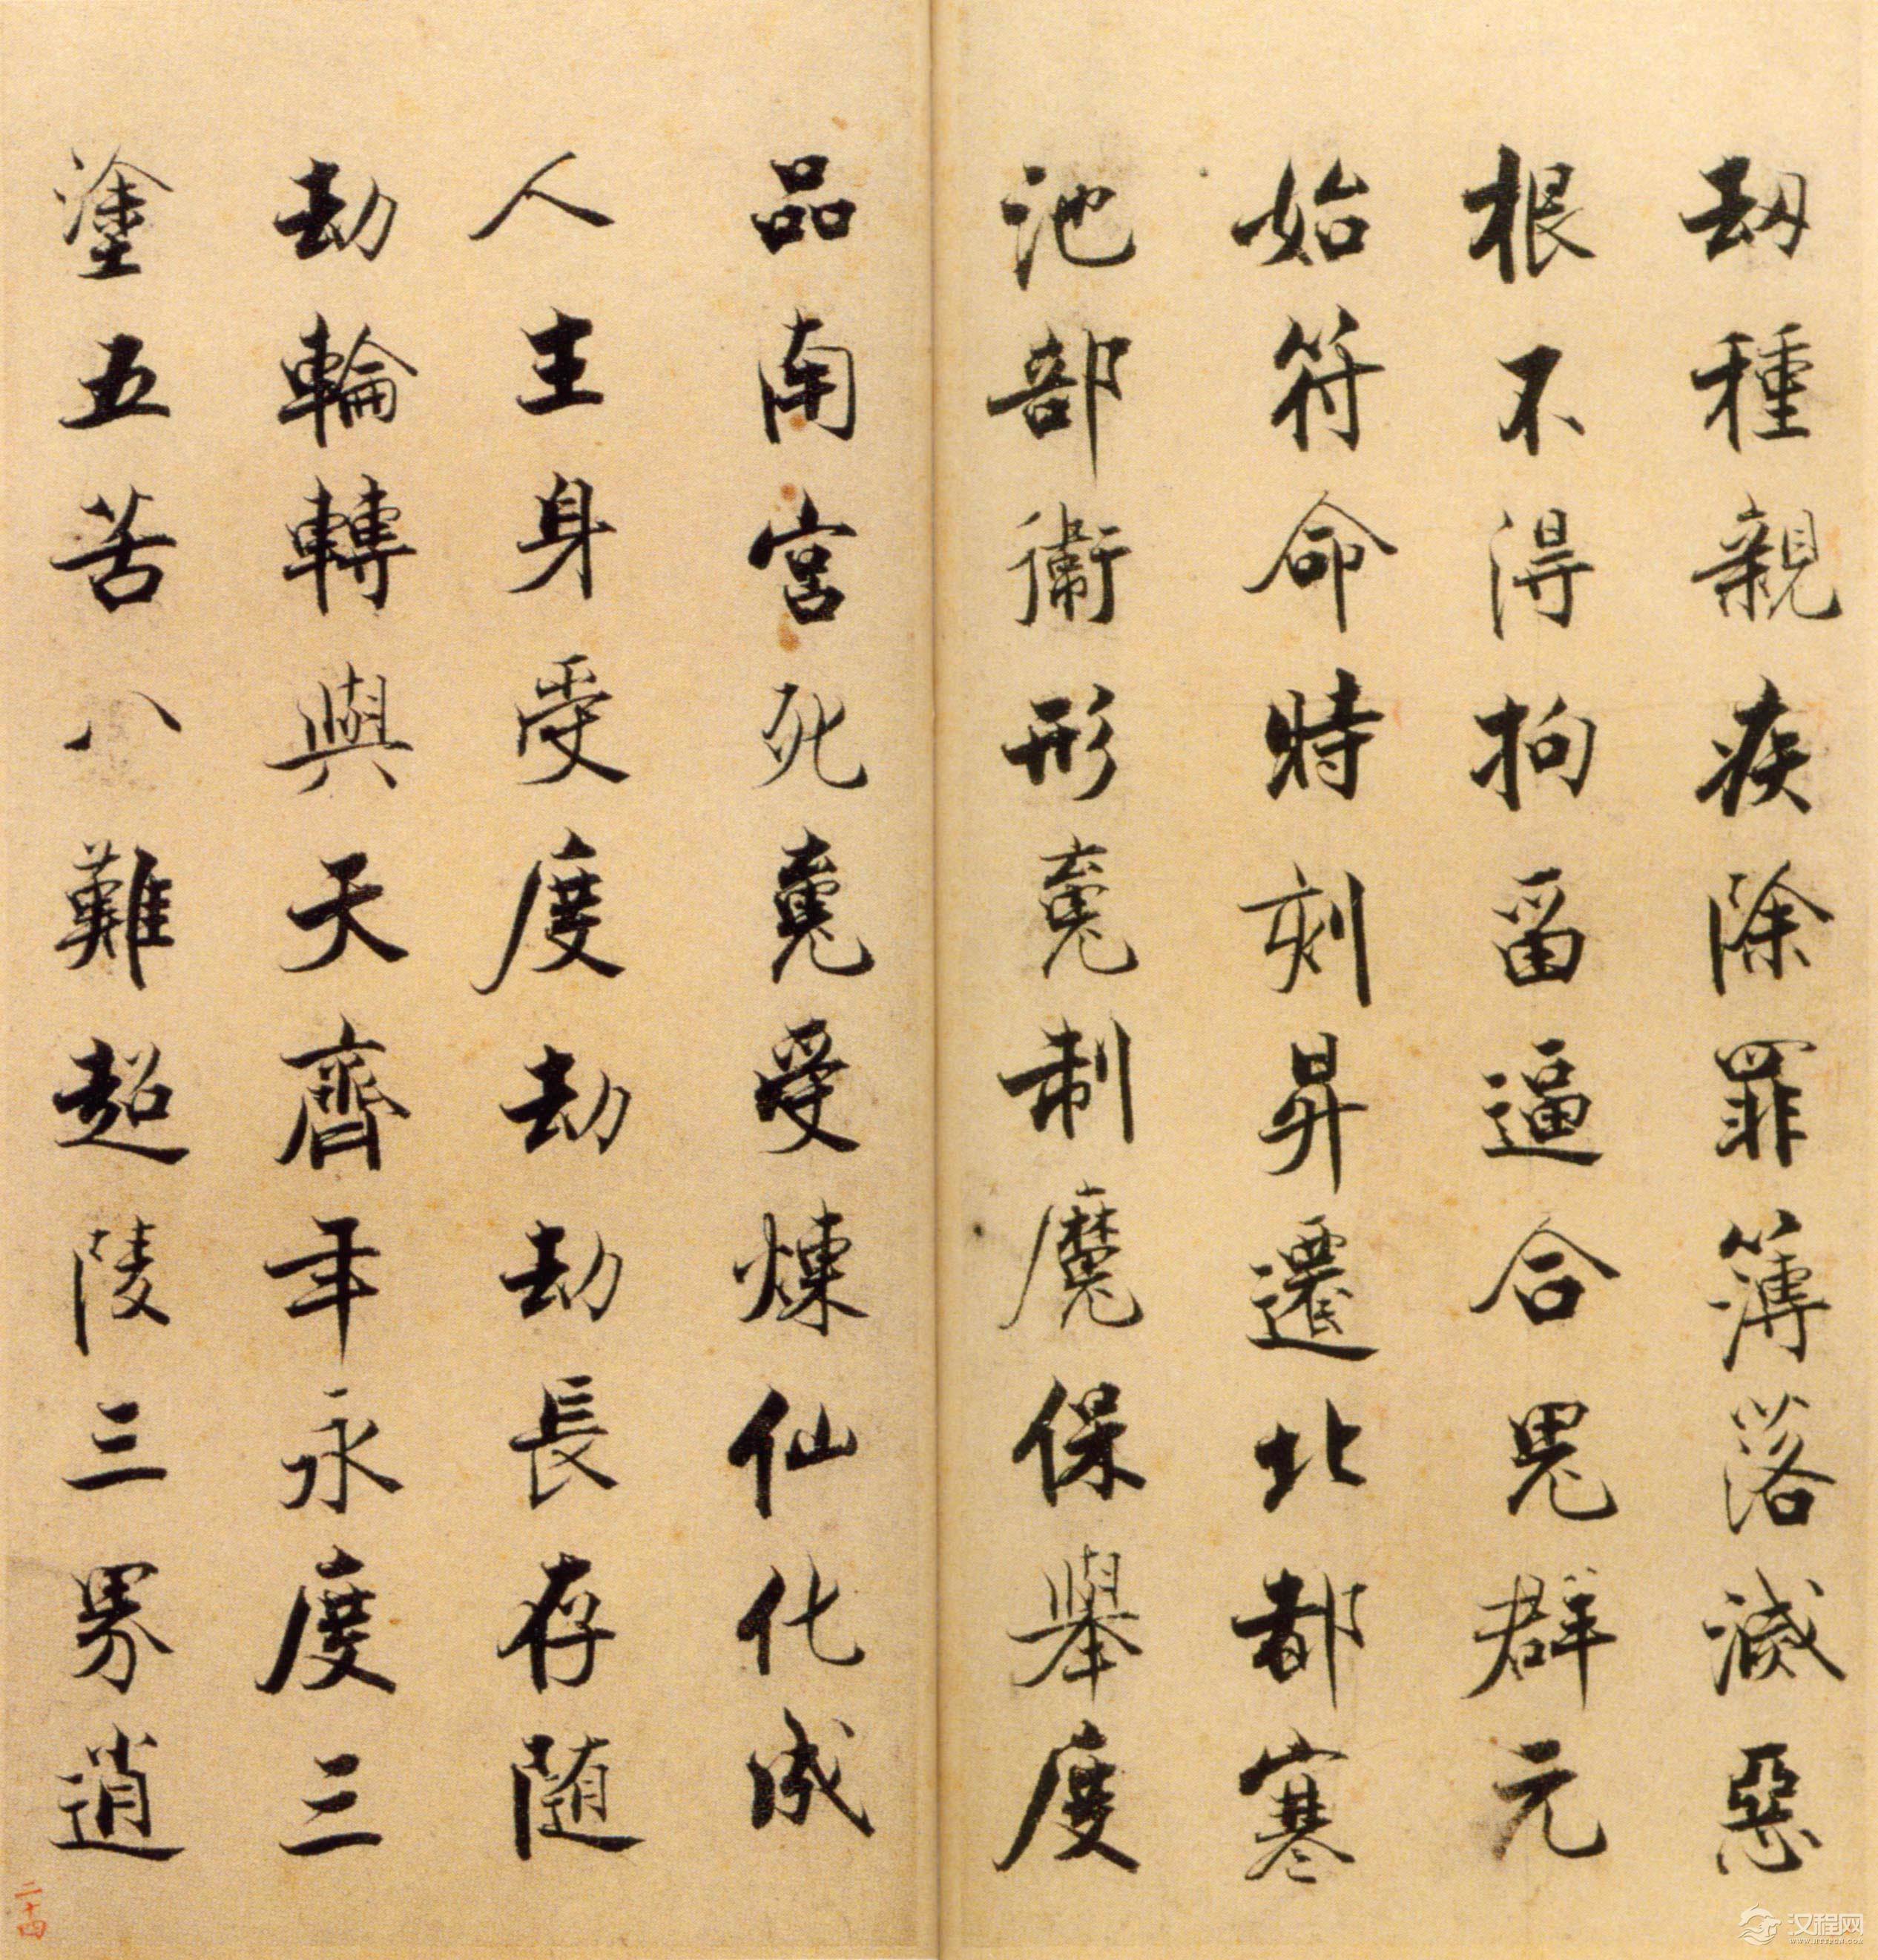 刼種親疾除罪簿落滅惡
根不得拘留逼合鬼群元
始符命時刻昇遷北都寒
池部衛形䰟制魔保舉度
品南宮死䰟受煉仙化成
人生身受度劫劫長存随
劫輪轉與天齊年永度三
塗五苦八難超陵三界逍
二十四
汉程网
WWW.HTTPCN.COM